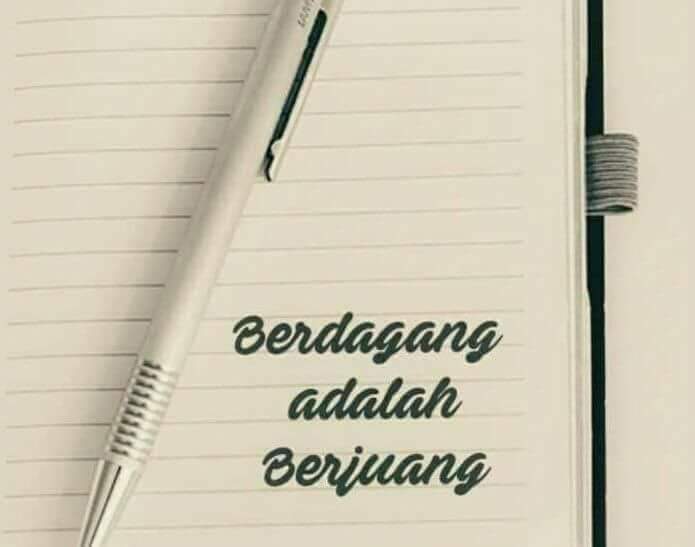 Berdagang
adalah
Berjuang